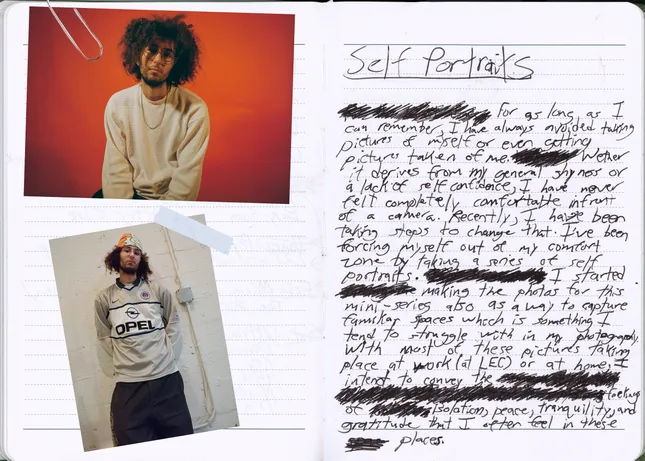 OPEL
Self Portraits
For as long as I
can remember, I have always avoided taking
pictures of myself or even getting
pictures taken of me. Wether
it derives from my general shyness or
a lack of self confidence, I have never
felt completely comfortable infront
of a camera. Recently, I have been
taking steps to change that. I've been
forcing myself out of my comfort
zone by taking a series of self
portraits. I started
making the photos for this
mini-series also as a way to capture
familiar spaces which is something I
tend to struggle with in my photography.
With most of these pictures taking
place at work (at LEC) or at home, I
intend to convey the
of isolation, peace, tranquility, and
gratitude that I often feel in these
places.